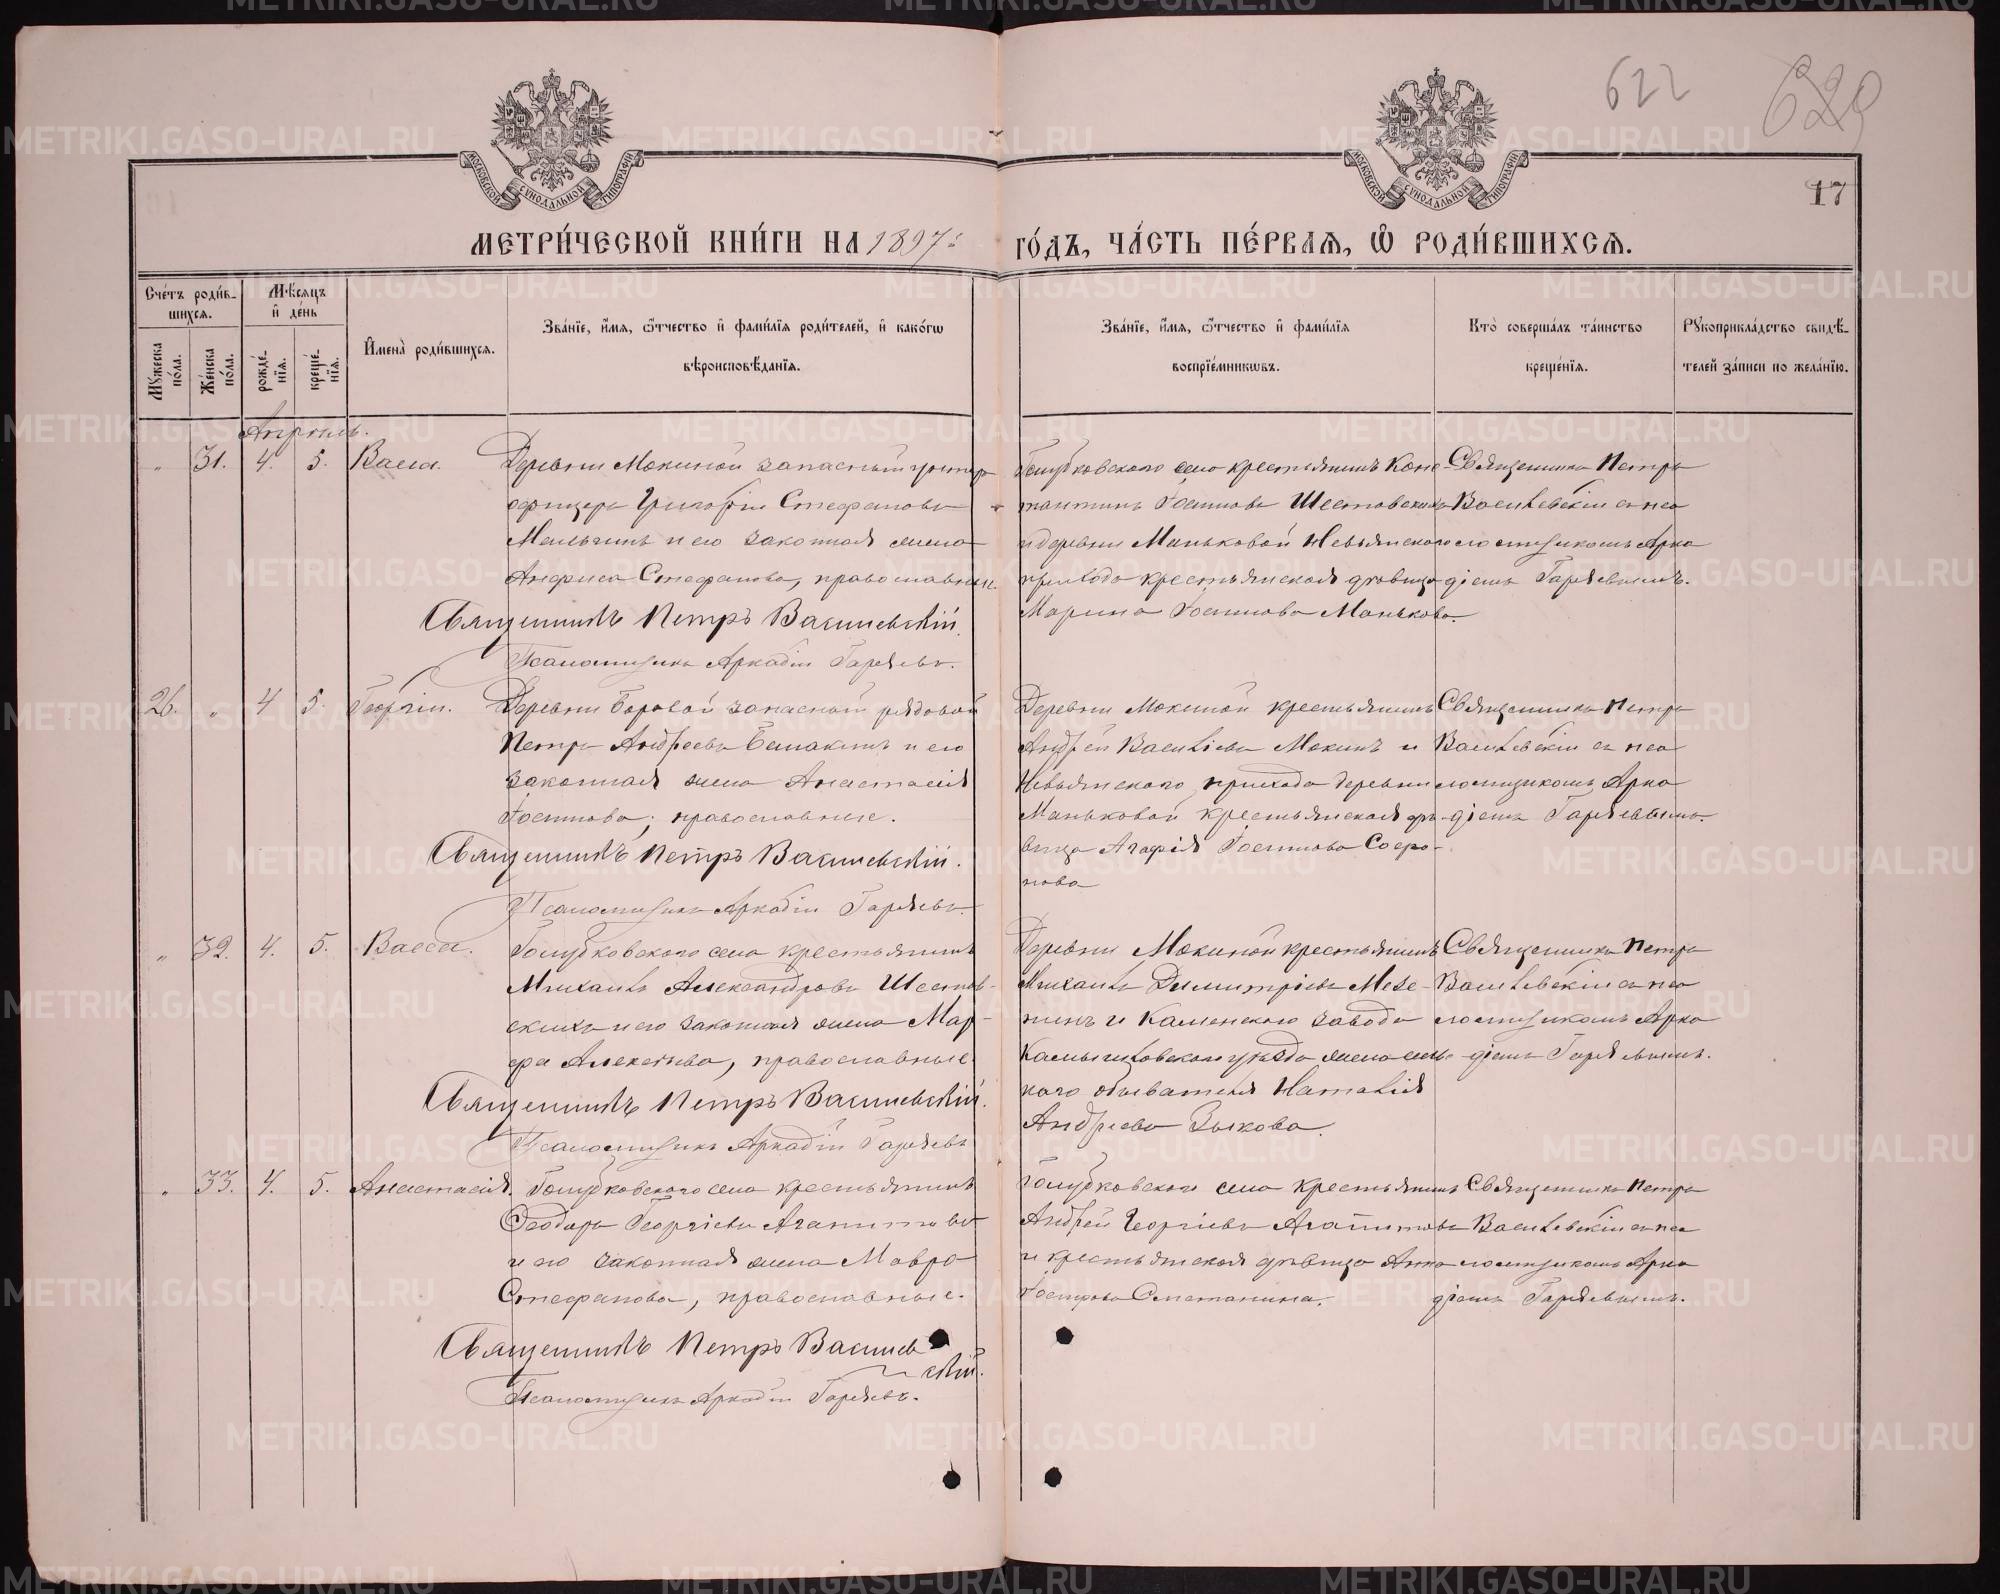 622
629
17
МОСКОВСКОЙ СѴНОДАЛЬНОЙ ТИПОГРАФІИ
МОСКОВСКОЙ СѴНОДАЛЬНОЙ ТИПОГРАФІИ
МЕТРИ́ЧЕСКОЙ КНИ́ГИ НА 1897й
ГО́ДЪ, ЧА́СТЬ ПЕ́РВАѦ, Ѡ҆ РОДИ́ВШИХСѦ.
Сче́тъ роди́в-
шихсѧ.
Мѣ́сѧцъ
и҆ де́нь
Мꙋ́жеска
по́ла.
Же́нска
по́ла.
рожде́-
нїѧ.
креще́-
нїѧ.
И҆мена̀ роди́вшихсѧ.
Зва́нїе, и҆́мѧ, ѻ҆́тчество и҆ фами́лїѧ роди́телей, и҆ како́гѡ
вѣроисповѣ́данїѧ.
Зва́нїе, и҆́мѧ, ѻ҆́тчество и҆ фами́лїѧ
воспрїе́мникѡвъ.
Кто̀ соверша́лъ та́инство
креще́нїѧ.
Рꙋкоприкла́дство свидѣ́-
телей за́писи по жела́нїю.
Апрѣль.
" 31. 4. 5. Васса.
Деревни Мокиной запасный унтеръ
офицеръ Григорій Стефановъ
и его законная жена
Анфиса Стефанова, православные.
Священникъ Петръ Василевскій.
Псаломщикъ Аркадій Гаряевъ.
Голубковскаго села крестьянинъ Конс-
тантинъ Іосифовъ Шестовскихъ
и деревни Маньковой Невьянскаго
прихода крестьянская дѣвица
Марина Іосифова Манькова.
Священникъ Петръ
Василевскій съ пса
ломщикомъ Арка
діемъ Гаряевымъ.
26. " 4 5. Георгій.
Деревни Боровой запасный рядовой
Петръ Андреевъ и его
законная жена Анастасія
Іосифова, православные.
Священникъ Петръ Василевскій.
Псаломщикъ Аркадій Гаряевъ.
Деревни Мокиной крестьянинъ
Андрей Василіевъ Мокинъ и
Невьянскаго прихода деревни
Маньковой крестьянская дѣ-
вица Агафія Іосифова Софро-
нова
Священникъ Петръ
Василевскій съ пса
ломщикомъ Арка
діемъ Гаряевымъ.
" 32. 4. 5. Васса.
Голубковскаго села крестьянинъ
Михаилъ Александровъ Шестов-
скихъ и его законная жена Мар-
фа Алексѣева, православные
Священникъ Петръ Василевскій.
Псаломщикъ Аркадій Гаряевъ
Деревни Мокиной крестьянинъ
Михаилъ Димитріевъ Меле-
и Каменскаго завода
Камышловскаго уѣзда жена сель-
каго обывателя Наталія
Андреева Зыкова.
Священникъ Петръ
Василевскій съ пса
ломщикомъ Арка
діемъ Гаряевымъ.
" 33. 4. 5. Анастасія.
Голубковскаго села крестьянинъ
Ѳеодоръ Георгіевъ Агапитовъ
и его законная жена Мавра
Стефанова, православные.
Священникъ Петръ Василев
скій.
Псаломщикъ Аркадій Гаряевъ.
Голубковскаго села крестьянинъ
Андрей Георгіевъ Агапитовъ
и крестьянская дѣвица Анна
Сметанина.
Священникъ Петръ
Василевскій съ пса
ломщикомъ Арка
діемъ Гаряевымъ.
METRIKI.GASO-URAL.RU